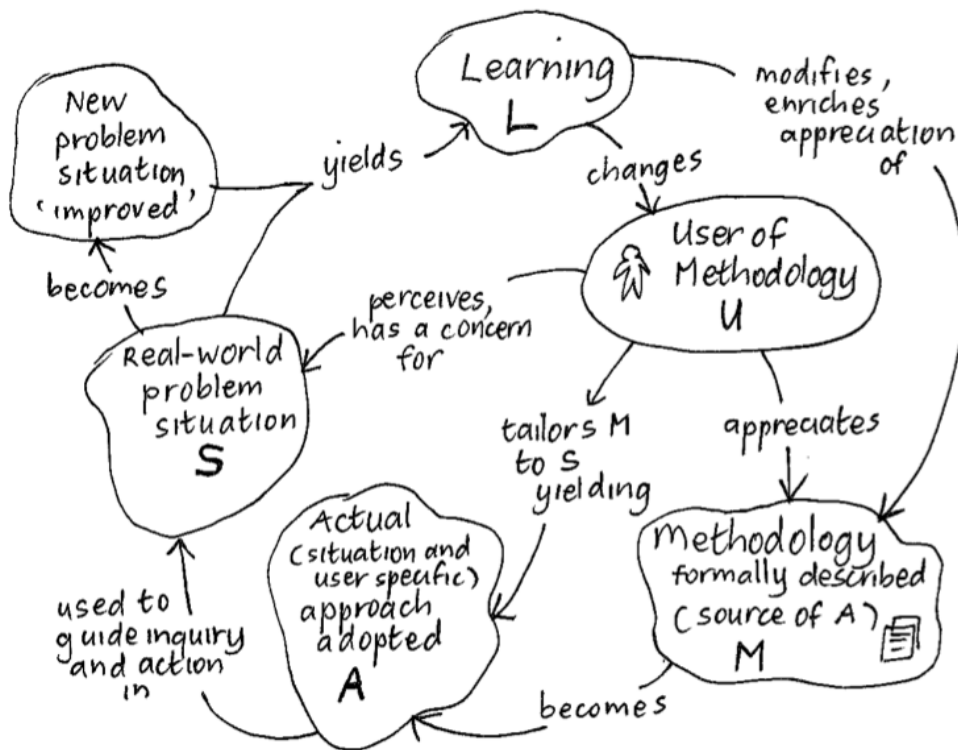 Learning
L
modifies,
enriches
appreciation
of
New
problem
situation
'improved'
yields
changes
becomes
User of
Methodology
U
perceives,
has a concern
for
Real-world
problem
situation
S
tailors M
to S
yielding
appreciates
Actual
(situation and
user specific)
approach
adopted
A
Methodology
formally described
(source of A)
M
used to
guide inquiry
and action
in
becomes